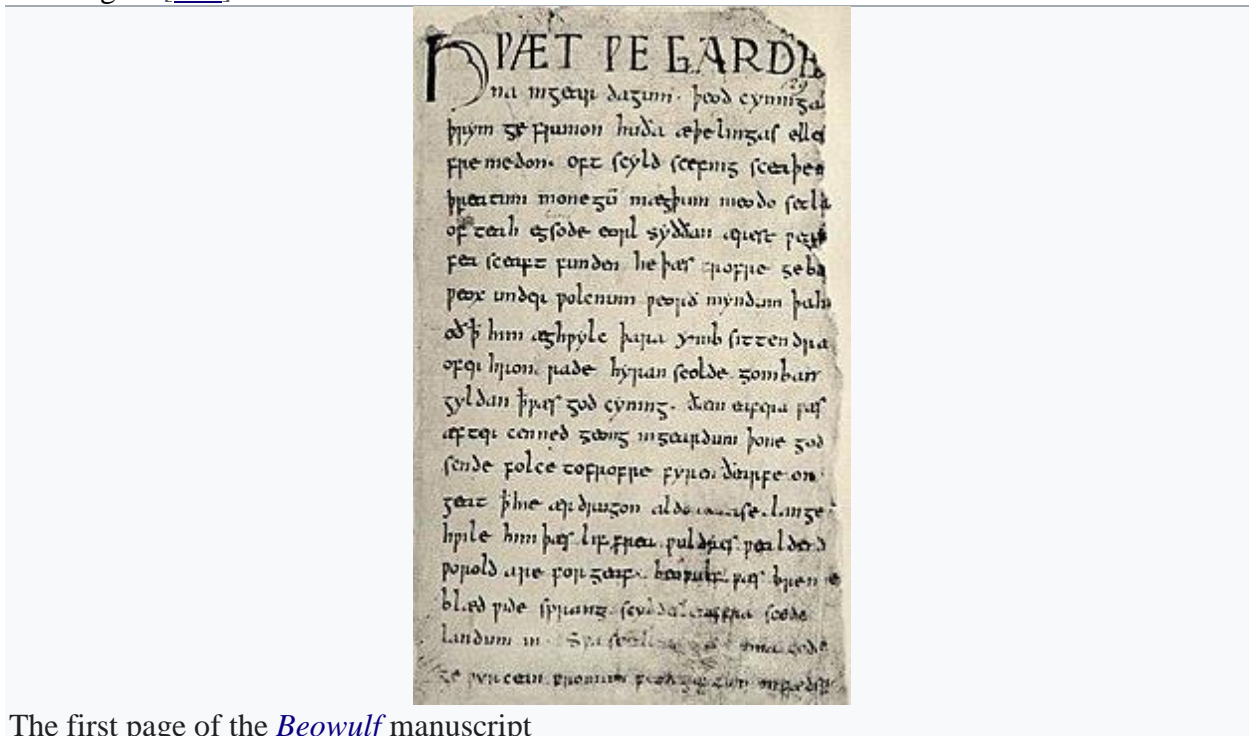 HǷÆT ǷE GARDE
na ingear dagum. þeod cyninga
þrym ge frunon huða æþelingas elle
fremedon. oft scyld scefing sceaþen
þreatum monegū mægþum meodo setla
of teah egsode eorl syððan ærest ƿear
fea sceaft funden he þæs frofre geba
ƿeox under ƿolcnum ƿeorð myndum þah
oð ꝥ him æghƿylc þara ymb sittendra
ofer hron rade hyran scolde gomban
gyldan ꝥ ƿæs god cyning. ðæm eafera ƿæs
æfter cenned geong ingeardum þone god
sende folce tofrofre fyren ðearfe on
geat ꝥ hie ær drugon aldor ase. lange
hƿile him þæs lif frea ƿuldres ƿealdend
ƿorold are for geaf. beoƿulf ƿæs breme
blæd ƿide sprang scyldes eafera scede
landum in. Sƿa sceal guma gode
ge ƿyrcean fromum feoh giftum
The first page of the Beowulf manuscript